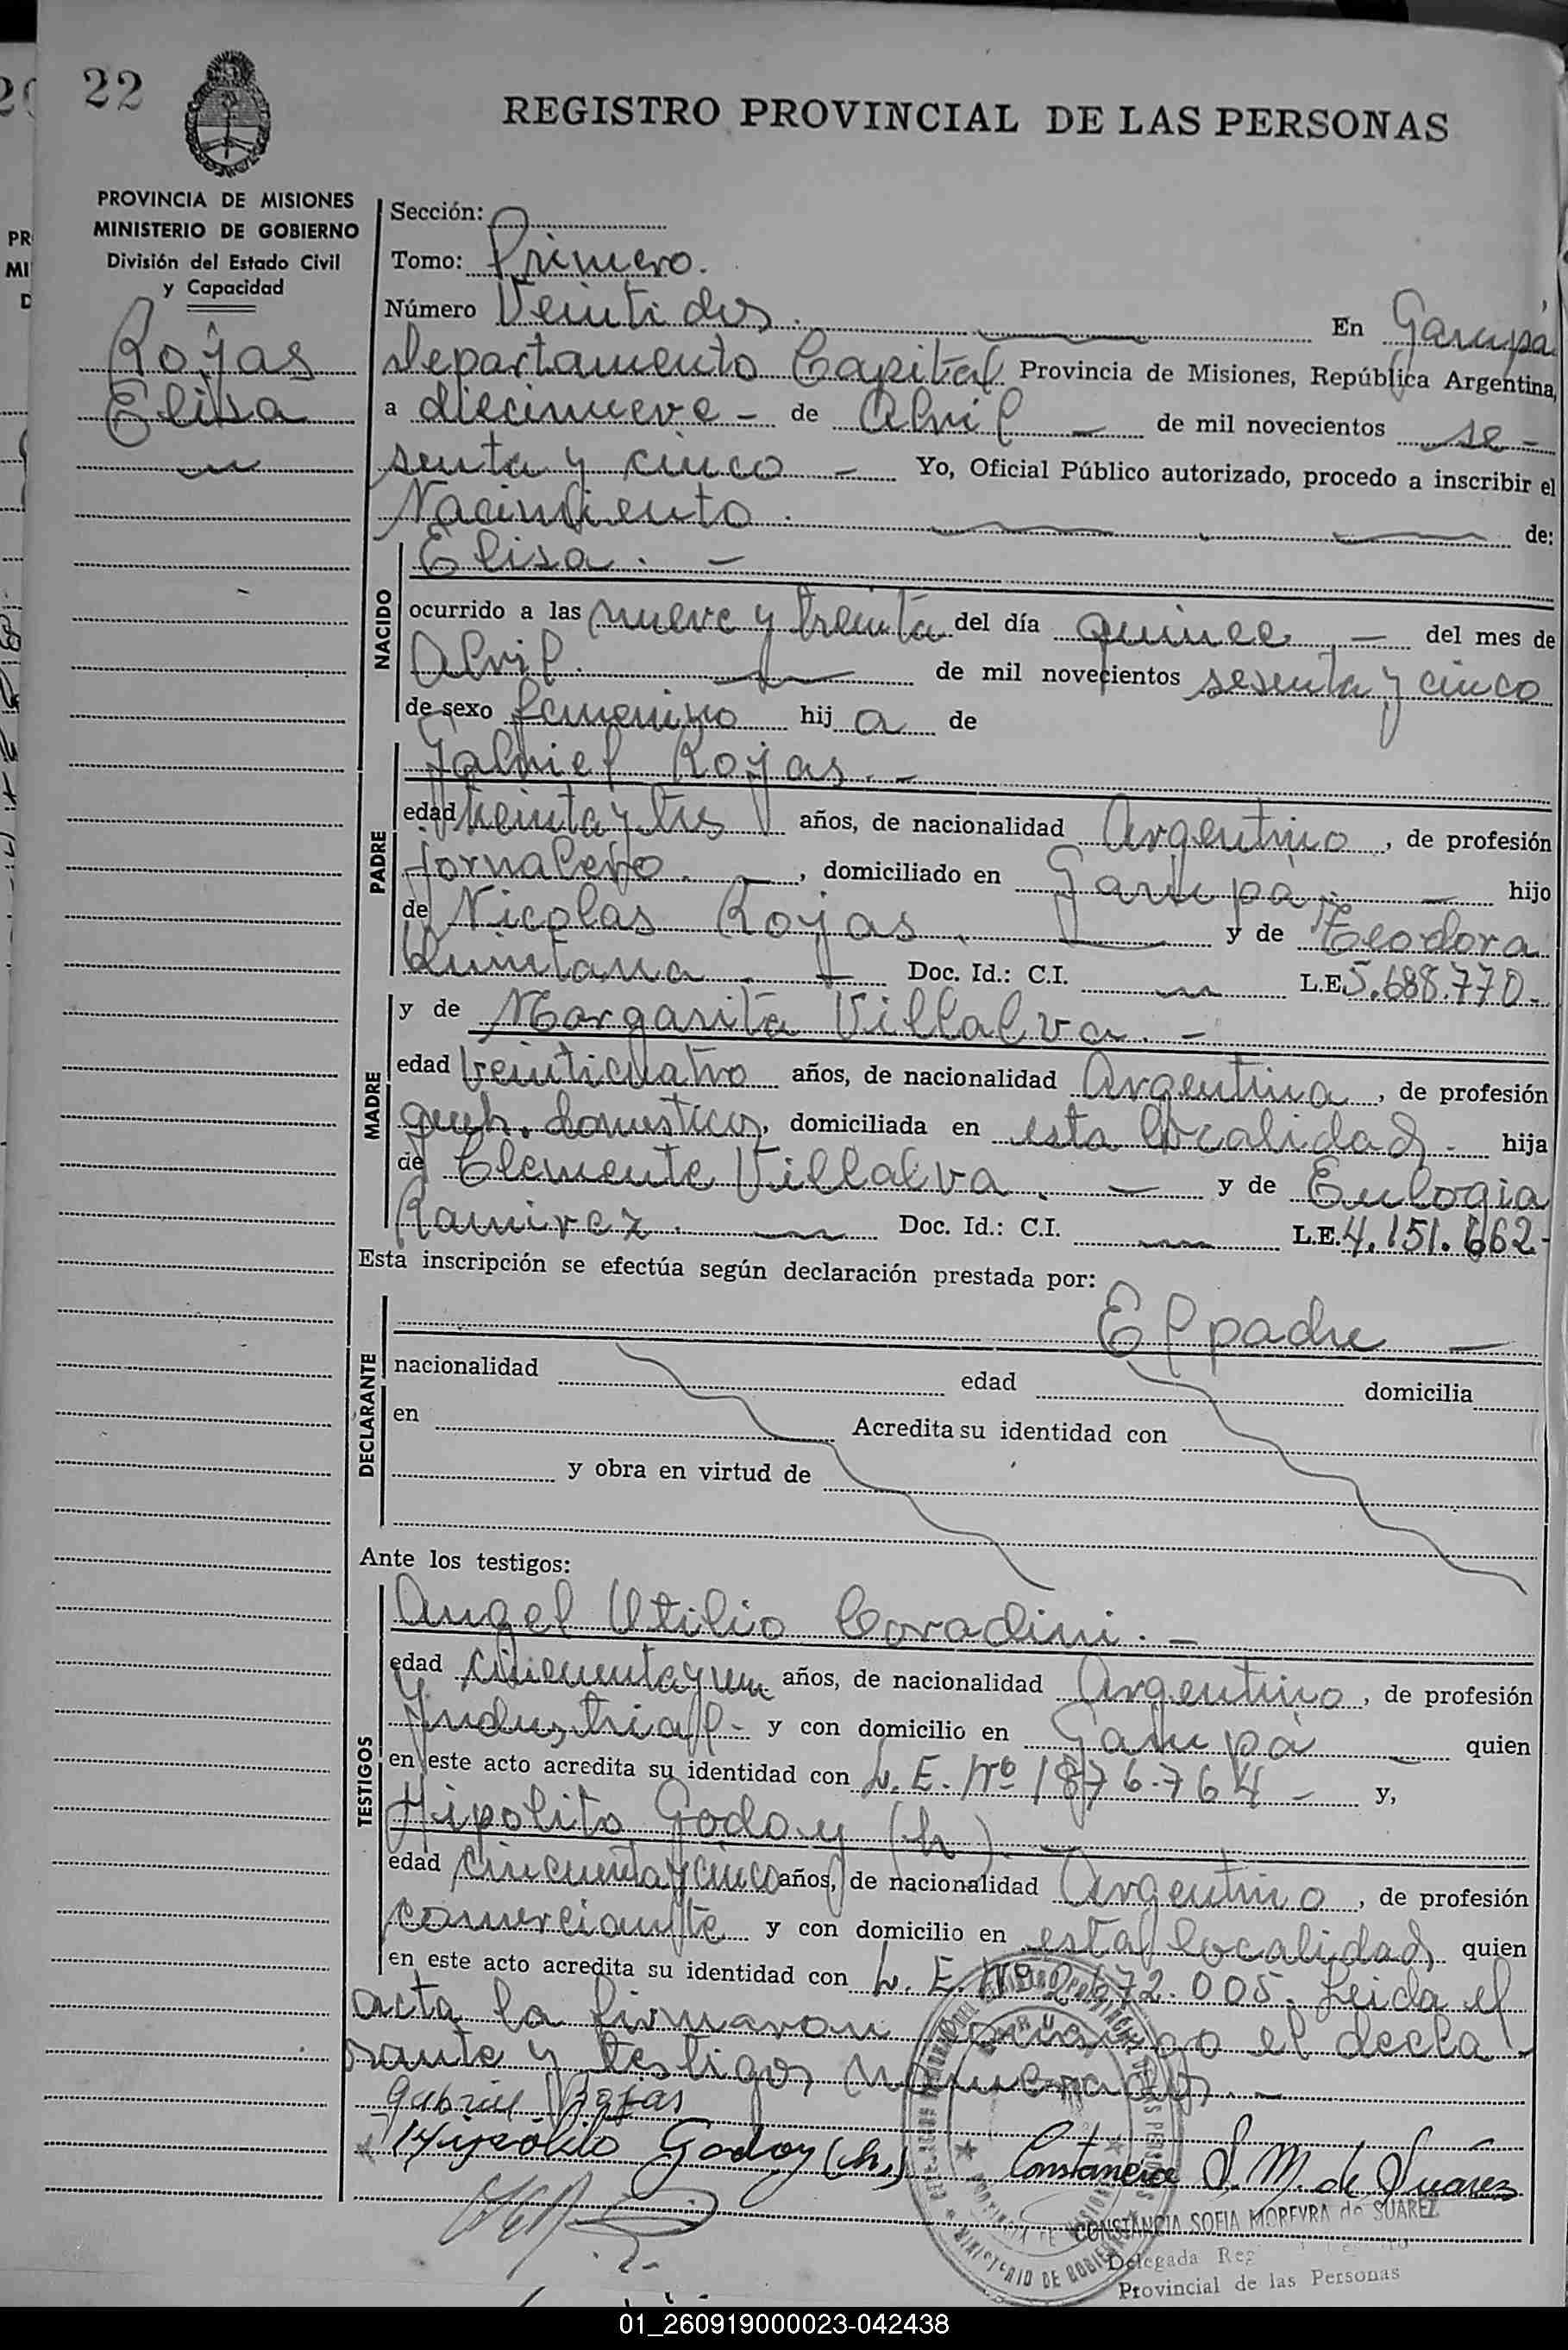 22
REGISTRO PROVINCIAL DE LAS PERSONAS
PROVINCIA DE MISIONES
MINISTERIO DE GOBIERNO
División del Estado Civil
y Capacidad
Rojas
Elisa
Sección:
Tomo: Primero.
Número Veintidos. En Garupá
Departamento Capital Provincia de Misiones, República Argentina,
a diecinueve - de Abril - de mil novecientos se-
senta y cinco - Yo, Oficial Público autorizado, procedo a inscribir el
Nacimiento. de:
NACIDO
Elisa. -
ocurrido a las nueve y treinta del día quince - del mes de
Abril. de mil novecientos sesenta y cinco
de sexo femenino hij a de
PADRE
Gabriel Rojas. -
edad treinta y tres años, de nacionalidad Argentino, de profesión
jornalero. -, domiciliado en Garupá. - hijo
de Nicolas Rojas. - y de Teodora
Quintana - Doc. Id.: C.I. L.E. 5.688.770.-
MADRE
y de Margarita Villalva. -
edad veinticuatro años, de nacionalidad Argentina, de profesión
queh. domesticos, domiciliada en esta localidad. - hija
de Clemente Villalva. - y de Eulogia
Ramirez. Doc. Id.: C.I. L.E. 4.151.662-
Esta inscripción se efectúa según declaración prestada por:
DECLARANTE
El padre -
nacionalidad edad domicilia
en Acredita su identidad con
y obra en virtud de
Ante los testigos:
TESTIGOS
Angel Utilio Coradini. -
edad cincuenta y un años, de nacionalidad Argentino, de profesión
Industrial- y con domicilio en Garupá - quien
en este acto acredita su identidad con L. E. Nº 1876.764 - y,
Hipolito Godoy (h). -
edad cincuenta y cinco años, de nacionalidad Argentino, de profesión
comerciante y con domicilio en esta localidad, quien
en este acto acredita su identidad con L. E. Nº 2.672.005. Leida el
acta la firmaron conmigo el decla-
rante y testigos nomenados. -
Gabriel Rojas
Hipólito Godoy (h.) Constancia S. M. de Suárez
CONSTANCIA SOFIA MOREYRA de SUAREZ
Delegada Reg
Provincial de las Personas
01_260919000023-042438